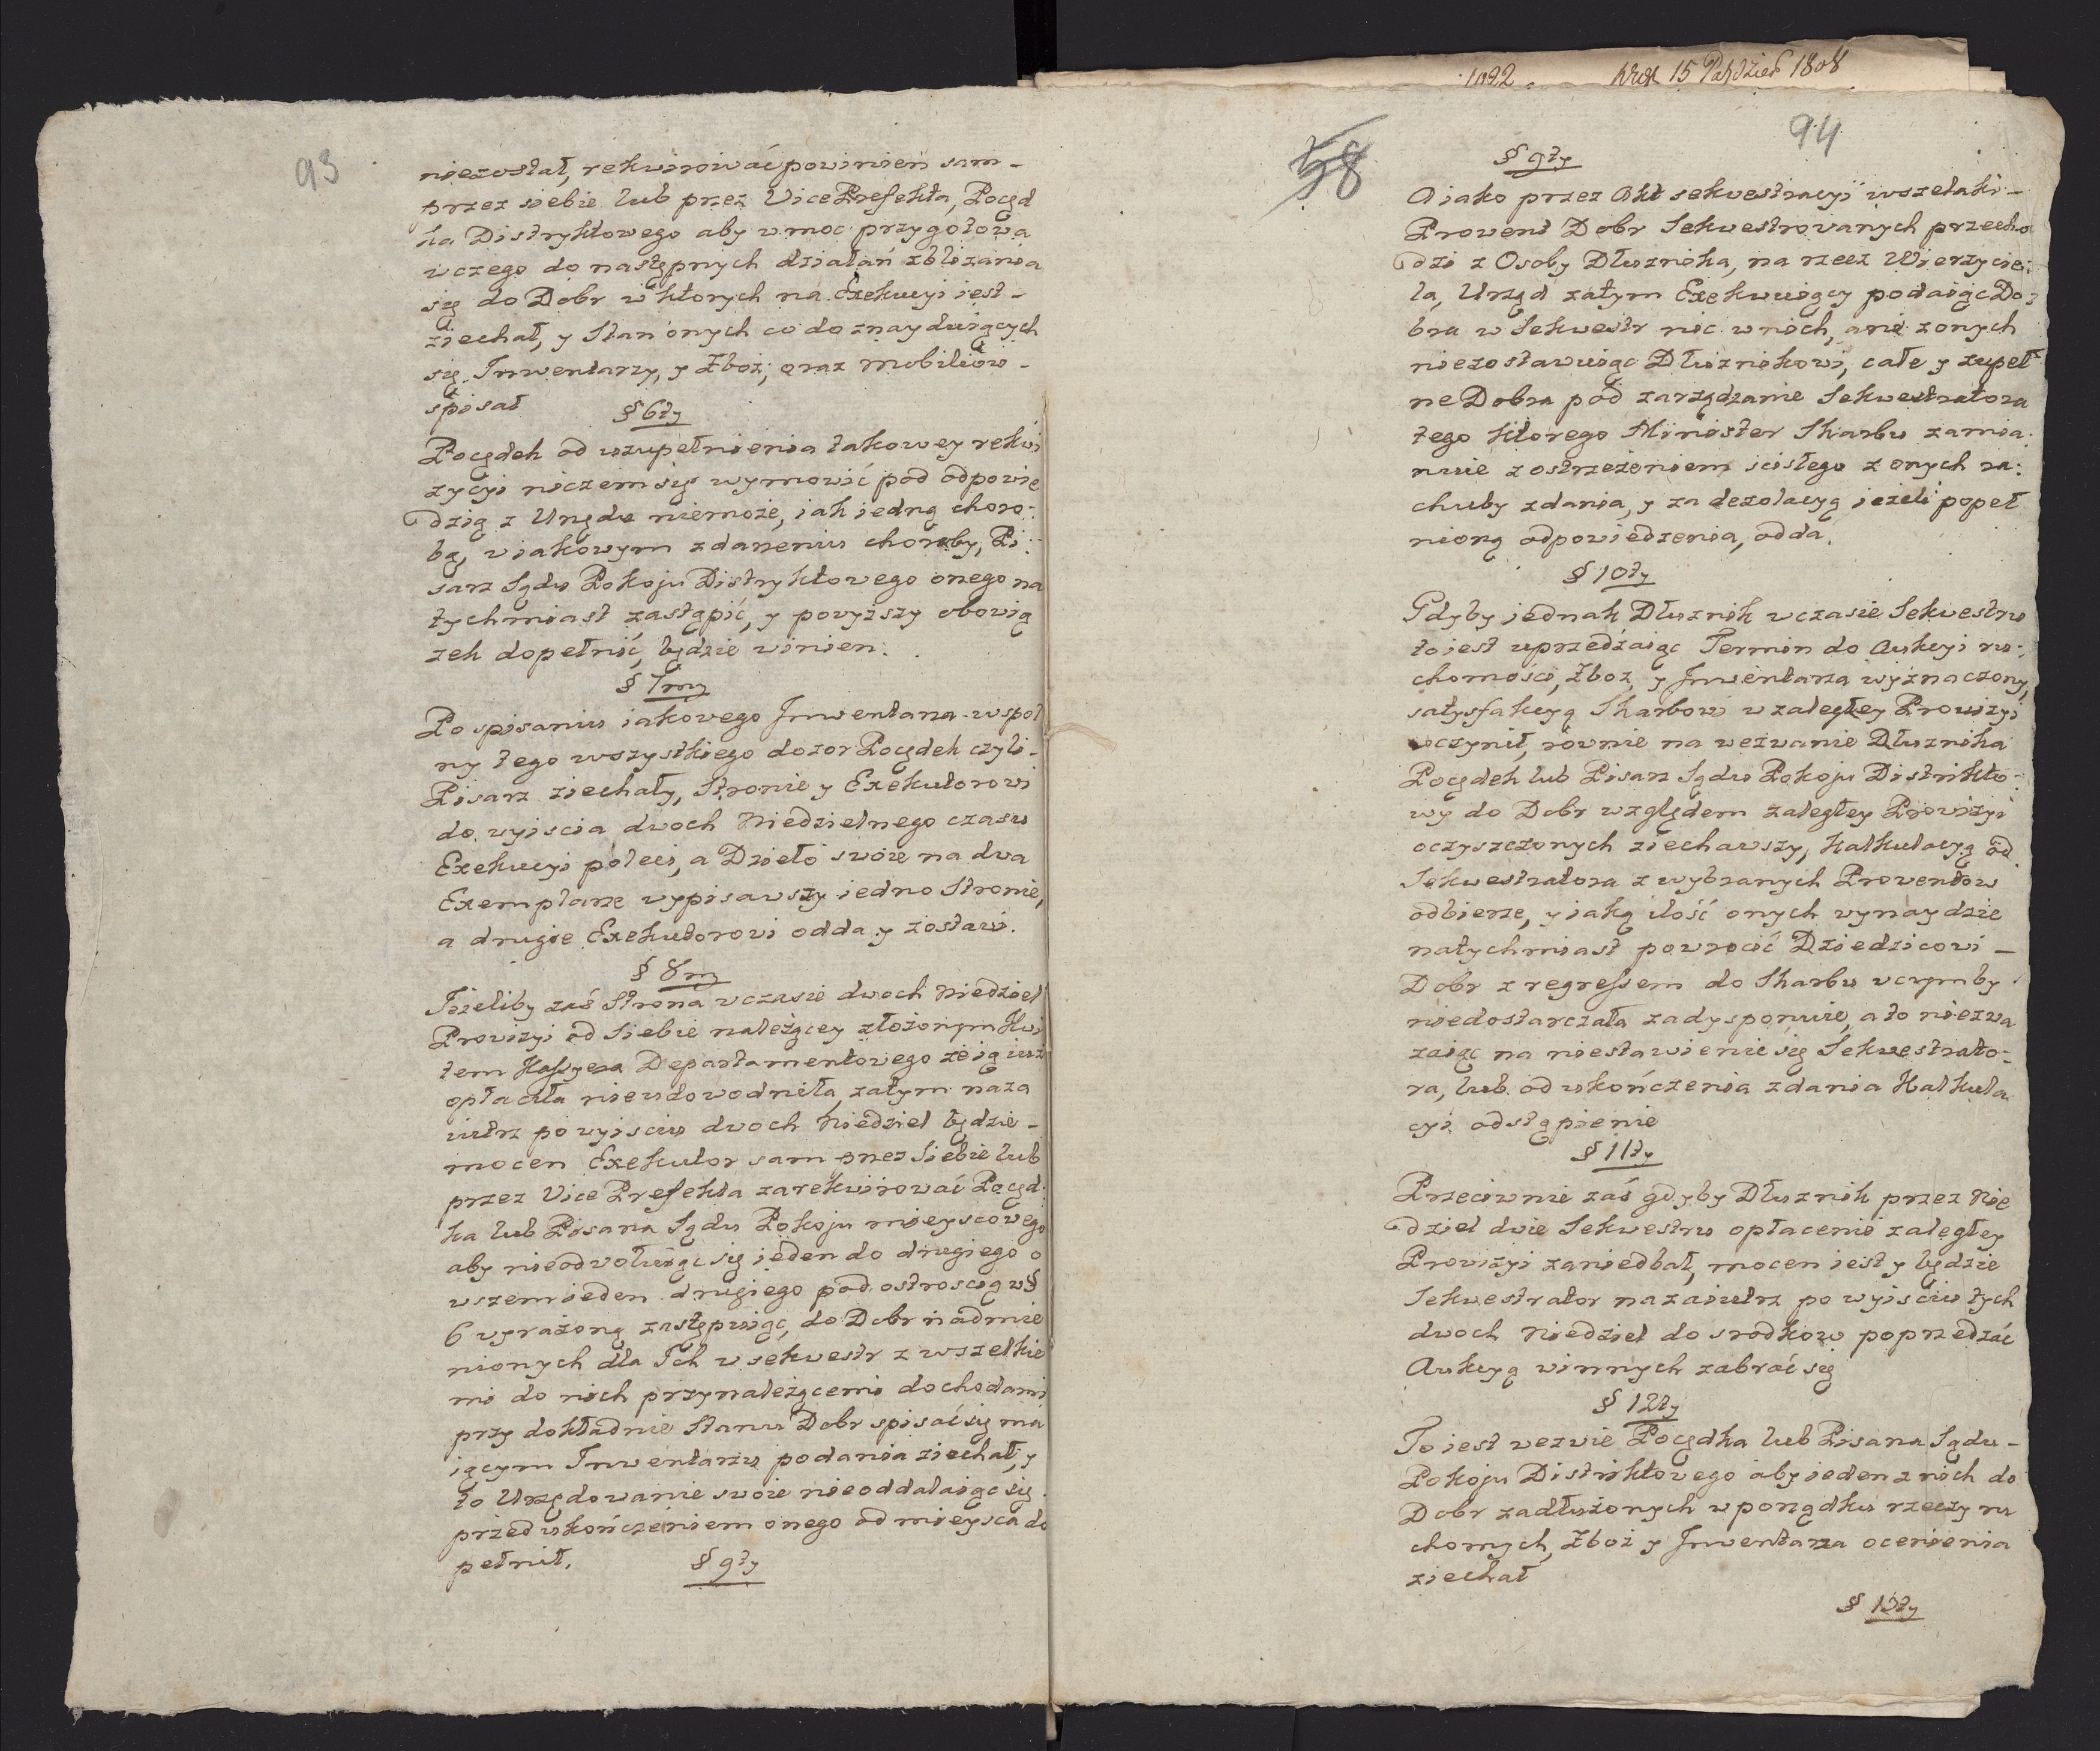 93
niezostał, rekwirować powinien sam -
przez siebie lub przez Vice Prefekta, Poçęd
ka Distryktowego aby w moc przygotowa
wczego do następnych działań zbliżania
się do Dobr w ktorych na Exekucyi iest -
ziechał, y Stan onych co do znayduiących
się Inwentarzy, y Zboż, oraz Mobiliow -
spisał
§ 6ty
Poçędek od uzupełnienia takowey rekwi
zycyi niczem się wymowić pod odpowie
dzią z Urzędu niemoże, iak iedną choro:
bą, w iakowym zdarzeniu choroby, Pi:
sarz Sądu Pokoju Distryktowego onego na
tychmiast zastąpić, y powyższy obowią
zek dopełnić, będzie winien.
§ 7my
Po spisaniu iakowego Inwentarza wspol
ny tego wszystkiego dozor Poçędek czyli -
Pisarz ziechały, Stronie y Exekutorowi
do wyiscia dwoch Niedzielnego czasu
Exekucyi poleci, a Dzieło swoie na dwa
Exemplarze wypisawszy iedno Stronie,
a drugie Exekutorowi odda y zostawi.
§ 8my
Ieżeliby zaś Strona w czasie dwoch Niedziel
Prowizyi od Siebie należącey złożonym Kwi
tem Kassyera Departamentowego że ią iusz
opłaciła nieudowodniła, zatym naza
iutrz po wyisciu dwoch Niedziel będzie -
mocen Exekutor sam przez Siebie lub
przez Vice Prefekta zarekwirować Poçęd
ka lub Pisarza Sądu Pokoju mieyscowego
aby nieodwołuiąc się ieden do drugiego o
wszem ieden drugiego pod ostroscią w §
6 wyrażoną zastępuiąc, do Dobr nadmie
nionych dla Ich w sekwestr z wszelkie
mi do nich przynależącemi dochodami
przy dokładnie Stanu Dobr spisać się ma
iącym Inwentarzu podania ziechał, y
to Urzędowanie swoie nieoddalaiąc się
przed ukończeniem onego od mieysca do
pełnił.
§ 9ty
1092 15 Paździer 1808
94
58
§ 9ty
A iako przez Akt sekwestracyi wszelaki -
Prowent Dobr Sekwestrowanych przecho
dzi z Osoby Dłużnika, na rzecz Wierzycie:
la, Urząd zatym Exekwuiący podaiąc Do:
bra w Sekwestr nic w nich, ani z onych
niezostawuiąc Dłużnikowi, całe y zupeł
ne Dobra pod zarządzanie Sekwestratora
tego ktorego Minister Skarbu zamia:
nuie z ostrzeżeniem scisłego z onych ra:
chuby zdania, y za dezolacyą ieżeli popeł
nioną odpowiedzenia, odda.
§ 10ty
Gdyby jednak Dłużnik w czasie Sekwestru
to iest uprzedzaiąc Termin do Aukcyi ru:
chomości, Zboż, y Inwentarza wyznaczony,
satysfakcyą Skarbowi w zaległey Prowizyi
uczynił, rownie na wezwanie Dłużnika
Poçędek lub Pisarz Sądu Pokoju Distrikto:
wy do Dobr względem zaległey Prowizyi
oczyszczonych ziechawszy, Kalkulacyą od
Sekwestratora z wybranych Prowentow
odbierze, y iaką ilość onych wynaydzie
natychmiast powrocić Dziedzicowi -
Dobr z regressem do Skarbu w czymby
niedostarczała zadysponuie, a to niezwa
żaiąc na niestawienie się Sekwestrato:
ra, lub od ukończenia zdania Kalkula
cyi odstąpienie
§ 11ty
Przeciwnie zaś gdyby Dłużnik przez Nie
dziel dwie Sekwestru opłacenie zaległey
Prowizyi zaniedbał, mocen iest y będzie
Sekwestrator nazaiutrz po wyisciu tych
dwoch Niedziel do srodkow poprzedzać
Aukcyą winnych zabrać się
§ 12ty
To iest wezwie Poçędka lub Pisarza Sądu -
Pokoju Distriktowego aby ieden z nich do
Dobr zadłużonych w porządku rzeczy ru
chomych, Zboż y Inwentarza ocenienia
ziechał
§ 13ty